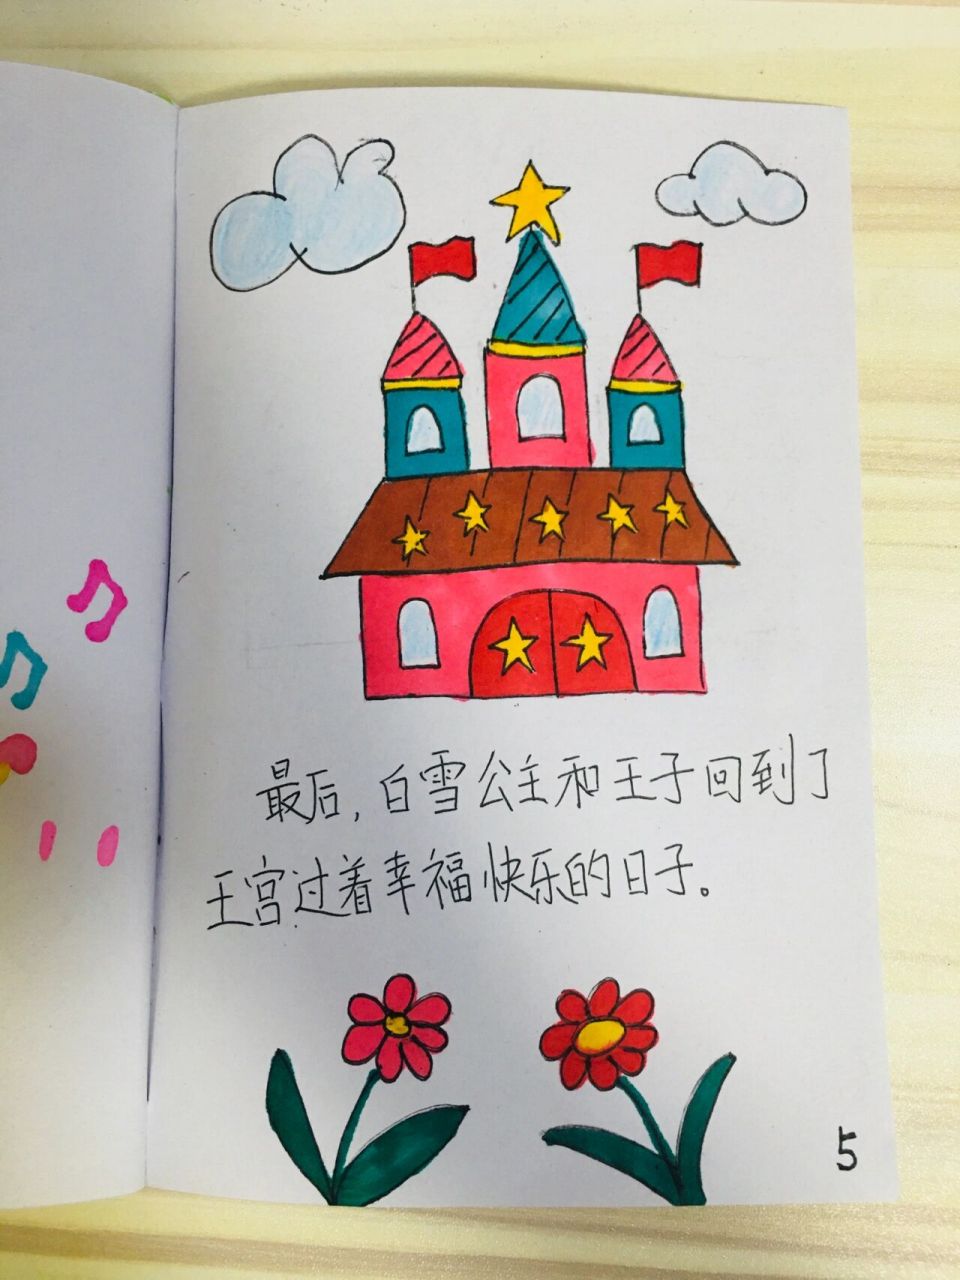 最后，白雪公主和王子回到了
王宫过着幸福快乐的日子。
5